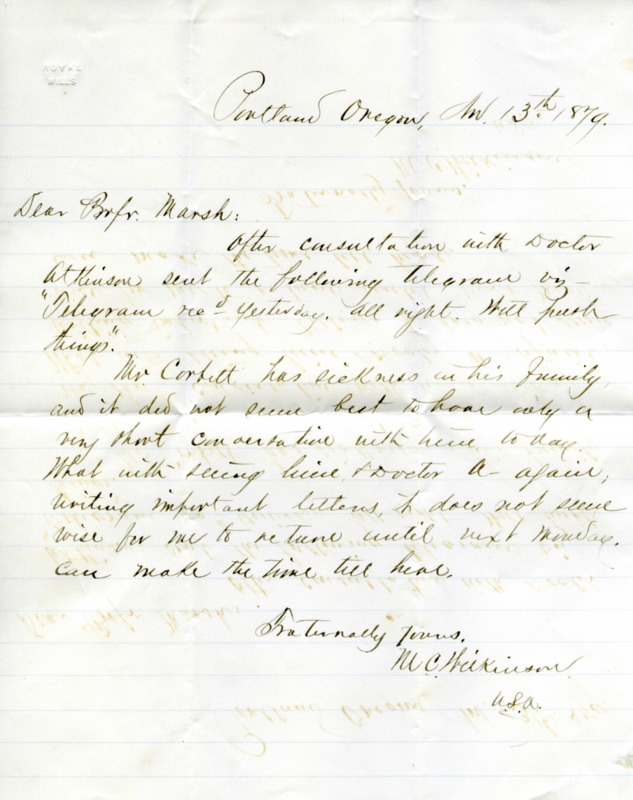 ROYAL
MILLS
Portland Oregon, 13th 1879.
Dear Brfr. Marsh:
After consultation with Doctor
Atkinson sent the following telegram viz—
"Telegram recd yesterday. All right. Will push
things".
Mr. Corbett has sickness in his family,
and it did not seem best to have only a
very short conversation with him to day.
What with seeing him, & Doctor A— again,
writing important letters, it does not seem
wise for me to return until next Monday.
Can make the time tell here.
Fraternally yours,
M. C. Wilkinson.
U.S.A.